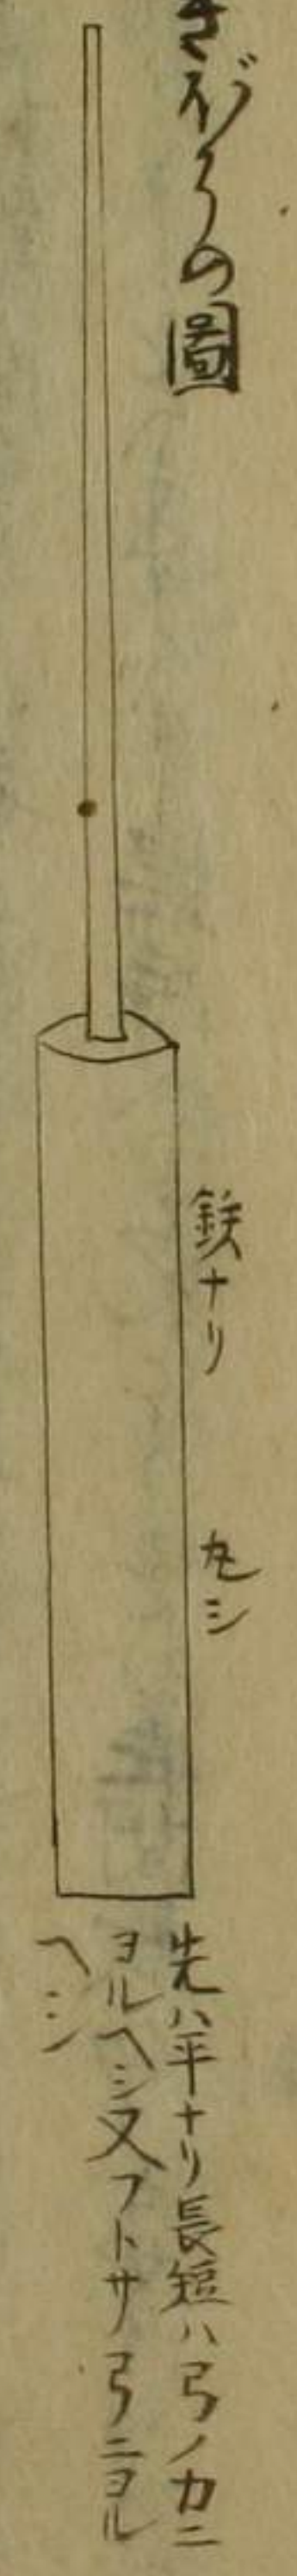 きぼうの圖
鉄ナリ
丸シ
先ハ平ナリ長短ハ弓ノ力ニ
ヨルヘシ又フトサノ弓ニヨル
ヘシ